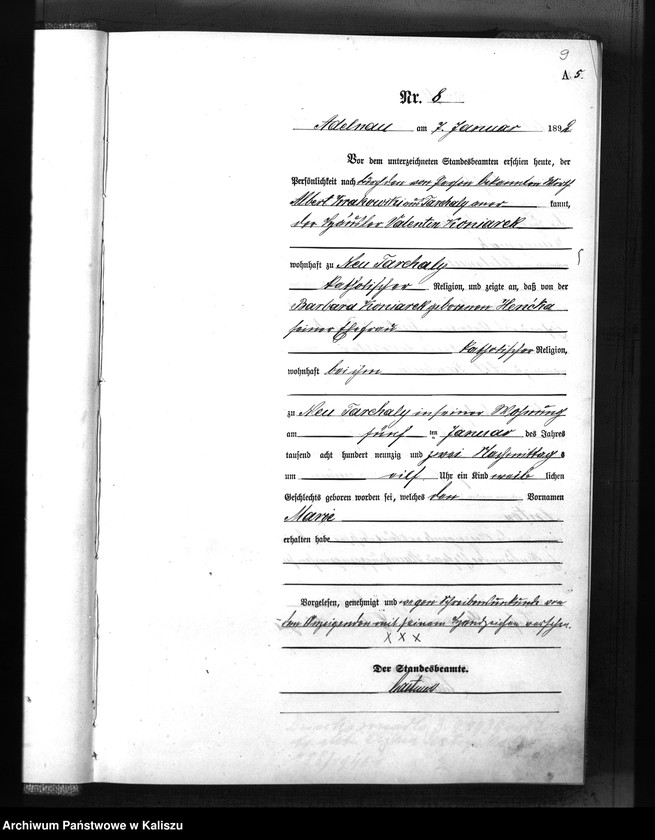 9
A 5.
Nr. 8
Adelnau am 7. Januar 1892
Vor dem unterzeichneten Standesbeamten erschien heute, der
Persönlichkeit nach durch den von Person bekannten Wirth
Albert Krakowski aus Tarchaly aner kannt,
der Häusler Valentin Koniarek
wohnhaft zu Neu Tarchaly
katholischer Religion, und zeigte an, daß von der
Barbara Koniarek geborenen Hencka
seiner Ehefrau
katholischer Religion,
wohnhaft bei ihm
zu Neu Tarchaly in seiner Wohnung
am fünf ten Januar des Jahres
tausend acht hundert neunzig und zwei Nachmittags
um eilf Uhr ein Kind weib lichen
Geschlechts geboren worden sei, welches den Vornamen
Marie
erhalten habe
Vorgelesen, genehmigt und wegen Schreibensunkunde von
dem Anzeigenden mit seinem Handzeichen versehen.
x x x
Der Standesbeamte.
Archiwum Państwowe w Kaliszu